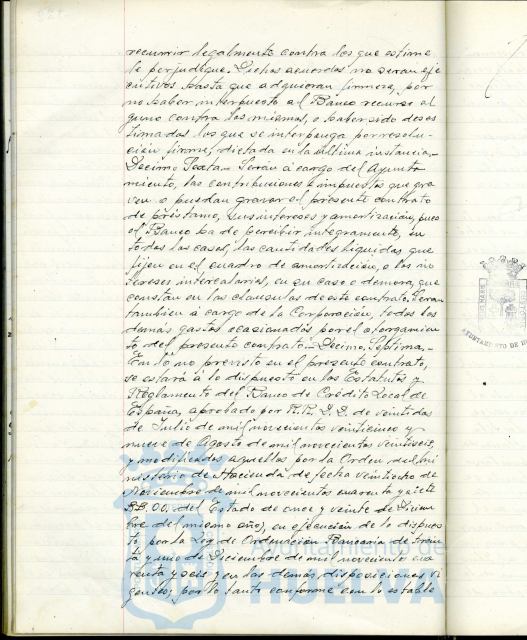 recurrir legalmente contra los que estime
le perjudique. Dichos acuerdos no serán eje
cutivos hasta que adquieran firmeza, por
no haber interpuesto el Banco recurso al
guno contra los mismos, o haber sido deses
timados los que se interponga por resolu-
ción firme, dictada en la última instancia.-
Decimo Sexta.- Serán á cargo del Ayunta
miento, las contribuciones e impuestos que gra
ven o puedan gravar el presente contrato
de préstamo, sus intereses y amortización, pues
el Banco ha de percibir integramente, en
todos los casos, las cantidades líquidas que
fijen en el cuadro de amortización, o los in
tereses intercalarios, en su caso o demora, que
constan en las cláusulas de este contrato. Serán
tambien á cargo de la Corporación, todos los
demás gastos ocasionados por el otorgamien
to del presente contrato.- Decimo Septima.-
En lo no previsto en el presente contrato,
se estará á lo dispuesto en los Estatutos y
Reglamento del Banco de Crédito Local de
España, aprobado por R.R. D.D. de veintidos
de Julio de mil novecientos veinticinco y
nueve de Agosto de mil novecientos veintiseis,
y modificados aquellos por la Orden del Mi
nisterio de Hacienda de fecha veintiocho de
Noviembre de mil novecientos cuarenta y siete
BB. OO. del Estado de once y veinte de Diciem
bre del mismo año, en ejecución de lo dispues
to por la Ley de Ordenación Bancaria de trein
ta y uno de Diciembre de mil novecientos cua
renta y seis y en las demás disposiciones vi
gentes; por lo tanto conforme con lo estable
Ayuntamiento de
HUELVA
AYUNTAMIENTO DE H